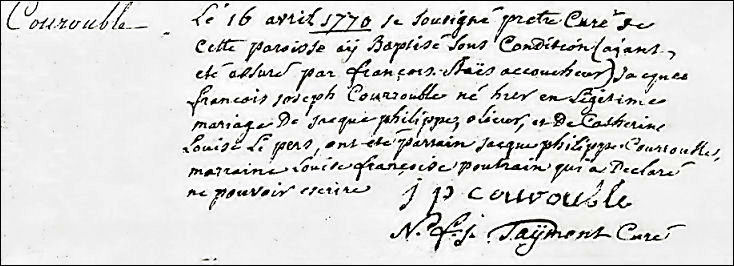 Courouble
Le 16 avril 1770 je sousigné pretre Curé de
cette paroisse aÿ Baptisé sous Condition (aÿant
eté assuré par françois Staës accoucheur) jacques
francois joseph Courrouble né hier en Légitime
mariage De jacque philippe, olieur, et De Catherine
Louise Le pers, ont eté parrain jacque philippe Courrouble,
marraine Louise françoise poutrain qui a Declaré
ne pouvoir escrire j p couvouble
N. f. j. Taÿmont Curé